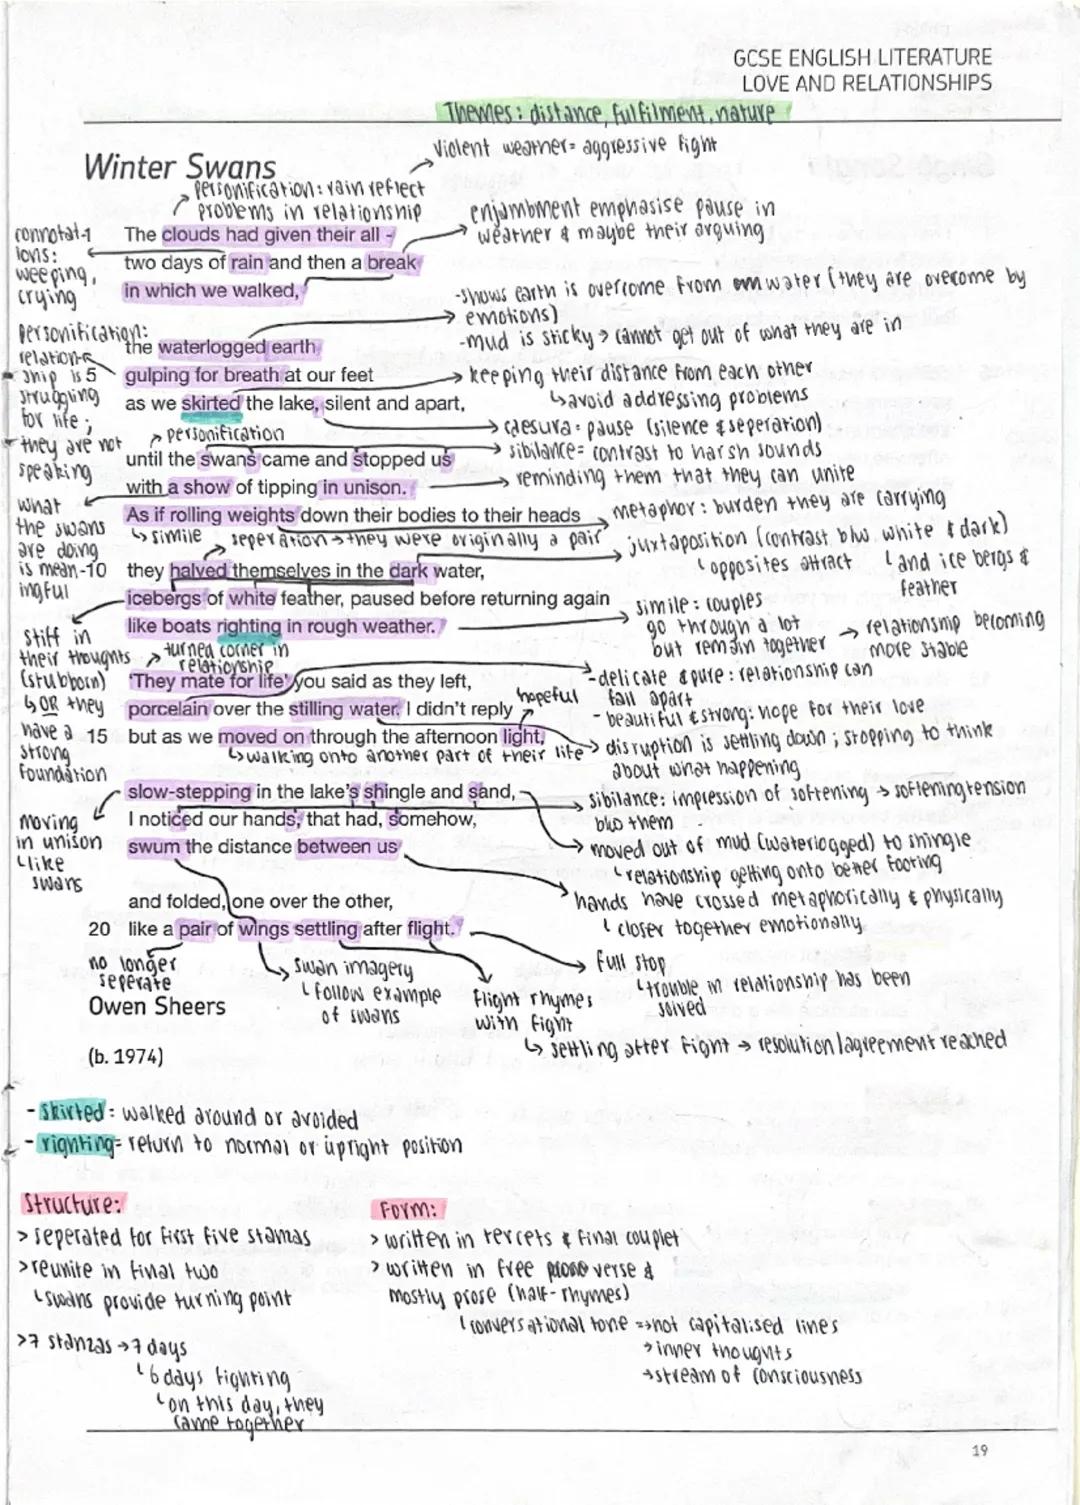 GCSE ENGLISH LITERATURE
LOVE AND RELATIONSHIPS
Themes: distance, fulfilment, nature
Winter Swans
Violent weather= aggressive fight
personification: rain reflect
problems in relationship
enjambment emphasise pause in
weather & maybe their arguing
connotat-1
ions:
weeping,
crying
The clouds had given their all -
two days of rain and then a break
in which we walked,
-shows earth is overcome from water (they are overcome by
emotions)
-mud is sticky → cannot get out of what they are in
Personification:
relation-
ship is 5
struggling
for life;
they are not
speaking
the waterlogged earth
gulping for breath at our feet
as we skirted the lake, silent and apart,
keeping their distance from each other
↳avoid addressing problems
caesura= pause (silence & seperation)
personification
sibilance= contrast to harsh sounds
until the swans came and stopped us
with a show of tipping in unison.
reminding them that they can unite
what
the swans
are doing
is mean-10
ingful
As if rolling weights down their bodies to their heads
metaphor: burden they are carrying
↳simile
seperation→they were originally a pair
juxtaposition (contrast b/w white & dark)
└opposites attract
└and ice bergs &
feather
they halved themselves in the dark water,
icebergs of white feather, paused before returning again
like boats righting in rough weather.
simile: couples
go through a lot
but remain together
→ relationship becoming
more stable
stiff in
their thoughts
(stubborn)
↳OR they
have a 15
strong
foundation
turned corner in
relationship
'They mate for life' you said as they left,
porcelain over the stilling water. I didn't reply
but as we moved on through the afternoon light,
hopeful
-delicate & pure: relationship can
fall apart
- beautiful & strong: hope for their love
↳walking onto another part of their life
disruption is settling down; stopping to think
about what happening
slow-stepping in the lake's shingle and sand,
I noticed our hands, that had, somehow,
swum the distance between us
moving
in unison
└like
swans
sibilance: impression of softening → softening tension
b/w them
moved out of mud (waterlogged) to shingle
└relationship getting onto better footing
hands have crossed metaphorically & physically
└ closer together emotionally
and folded, one over the other,
20 like a pair of wings settling after flight.
no longer
seperate
swan imagery
└ follow example
of swans
flight rhymes
with fight
↳ settling after fight → resolution/agreement reached
full stop
└trouble in relationship has been
solved
Owen Sheers
(b. 1974)
- skirted: walked around or avoided
- righting= return to normal or upright position
Structure:
> seperated for first five stanzas
> reunite in final two
└swans provide turning point
>7 stanzas →7 days
└6 days fighting
└on this day, they
came together
Form:
> written in tercets & final couplet
> written in free verse &
mostly prose (half-rhymes)
└conversational tone =>not capitalised lines
→inner thoughts
→stream of consciousness
19